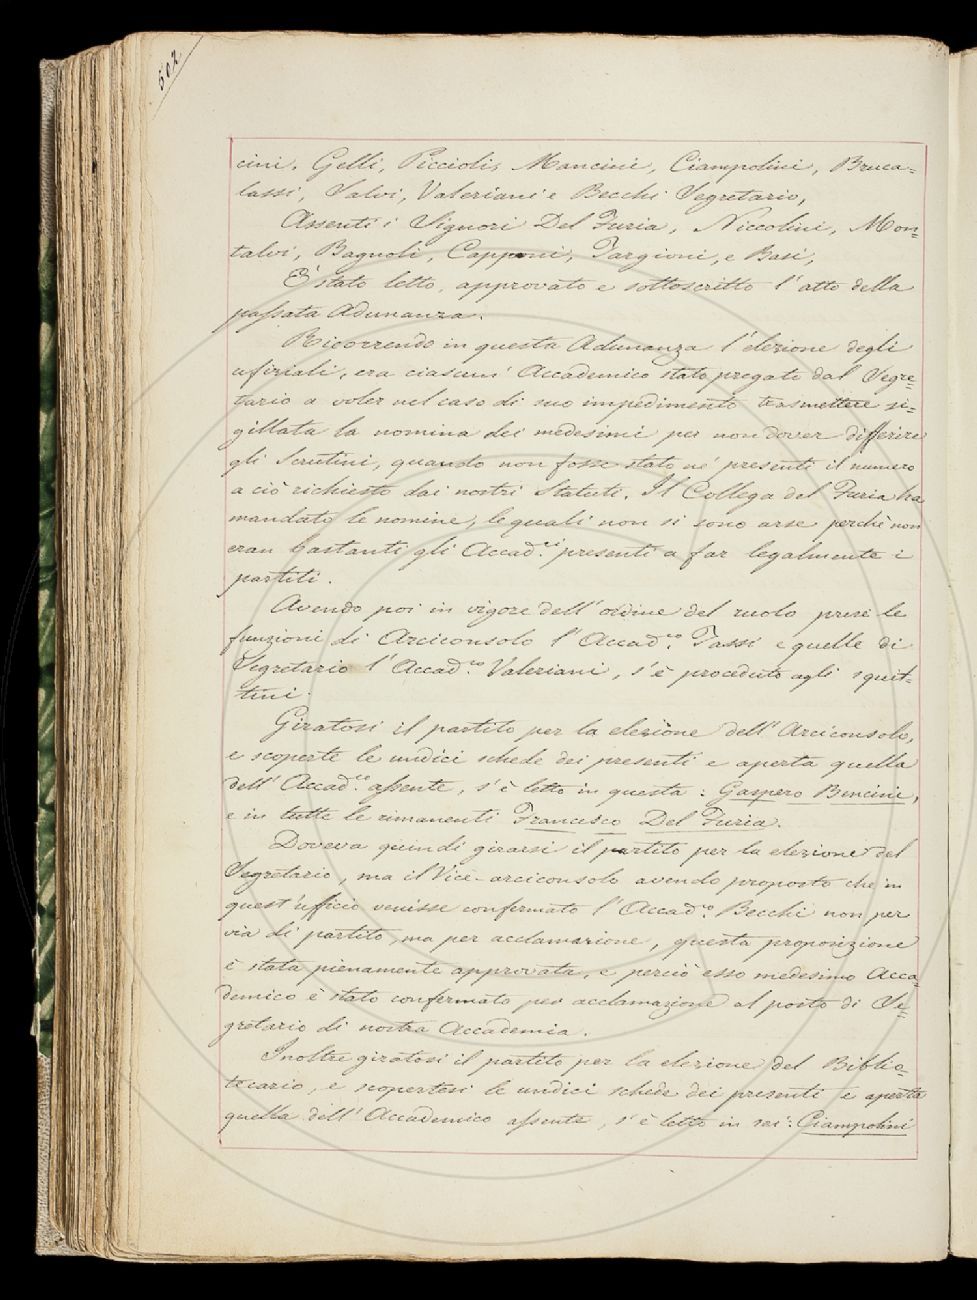 502.
cini, Gelli, Piccioli, Mancini, Ciampolini, Bruca-
lassi, Salvi, Valeriani e Becchi Segretario,
Assenti i Signori Del Furia, Niccolini, Mon-
talvi, Bagnoli, Capponi, Targioni, e Basi,
È stato letto, approvato e sottoscritto l'atto della
passata Adunanza.
Ricorrendo in questa Adunanza l'elezione degli
ufiziali, era ciascun' Accademico stato pregato dal Segre-
tario a voler nel caso di suo impedimento trasmettere si-
gillata la nomina dei medesimi per non dover differire
gli Scrutini, quando non fosse stato ne' presenti il numero
a ciò richiesto dai nostri Statuti. Il Collega del Furia ha
mandato le nomine, le quali non si sono arse perchè non
eran bastanti gli Accad.ci presenti a far legalmente i
partiti.
Avendo poi in vigore dell'ordine del ruolo prese le
funzioni di Arciconsolo l'Accad.co Tassi e quelle di
Segretario l'Accad.co Valeriani, s'è proceduto agli squit-
tini.
Giratosi il partito per la elezione dell'Arciconsolo,
e scoperte le undici schede dei presenti e aperta quella
dell'Accad.co assente, s'è letto in questa: Gaspero Bencini,
e in tutte le rimanenti Francesco Del Furia.
Doveva quindi girarsi il partito per la elezione del
Segretario, ma il Vice-arciconsolo avendo proposto che in
quest'ufficio venisse confermato l'Accad.co Becchi non per
via di partito, ma per acclamazione, questa proposizione
è stata pienamente approvata, e perciò esso medesimo Acca-
demico è stato confermato per acclamazione al posto di Se-
gretario di nostra Accademia.
Inoltre giratosi il partito per la elezione del Biblio-
tecario, e scopertesi le undici schede dei presenti e aperta
quella dell'Accademico assente, s'è letto in sei: Ciampolini